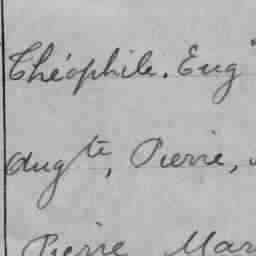 Théophile. Eug
Augte, Pierre,
Pierre Mar